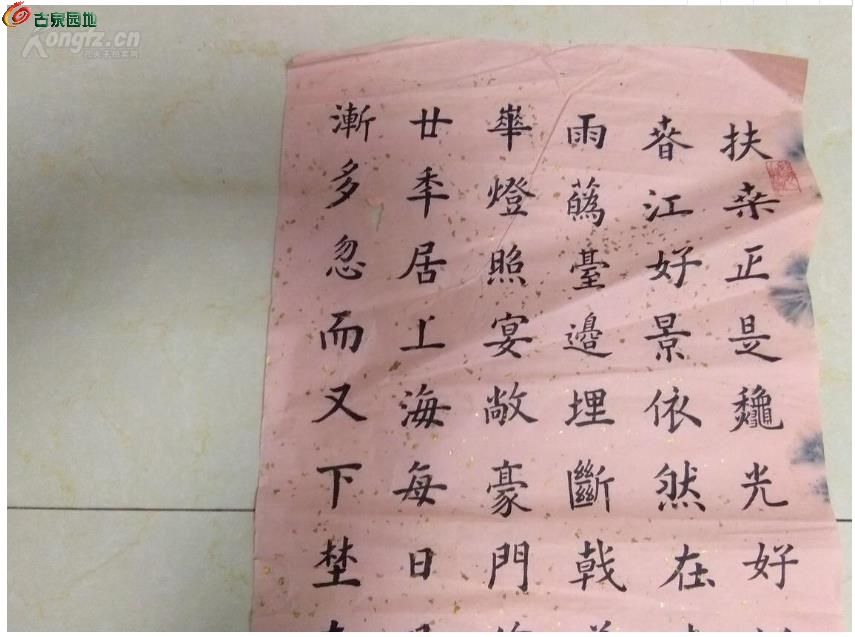 古泉园地
Kongfz.cn
孔夫子拍卖网
扶桒正是龝光好
春江好景依然在
雨蘤臺邊埋斷戟
華燈照宴敞豪門
廿季居上海每日
漸多忽而又下埜